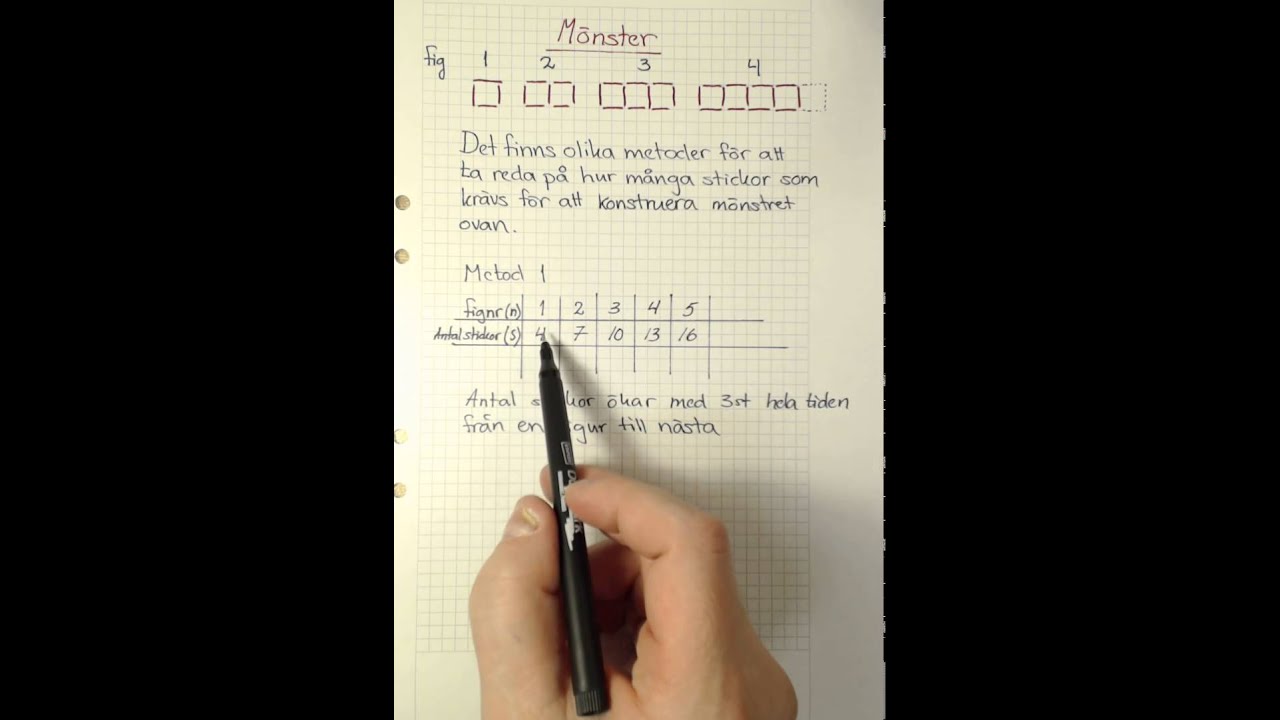 Mönster
fig 1 2 3 4
Det finns olika metoder för att
ta reda på hur många stickor som
krävs för att konstruera mönstret
ovan.
Metod 1
fignr (n) 1 2 3 4 5
Antal stickor (S) 4 7 10 13 16
Antal ökar med 3st hela tiden
från till nästa